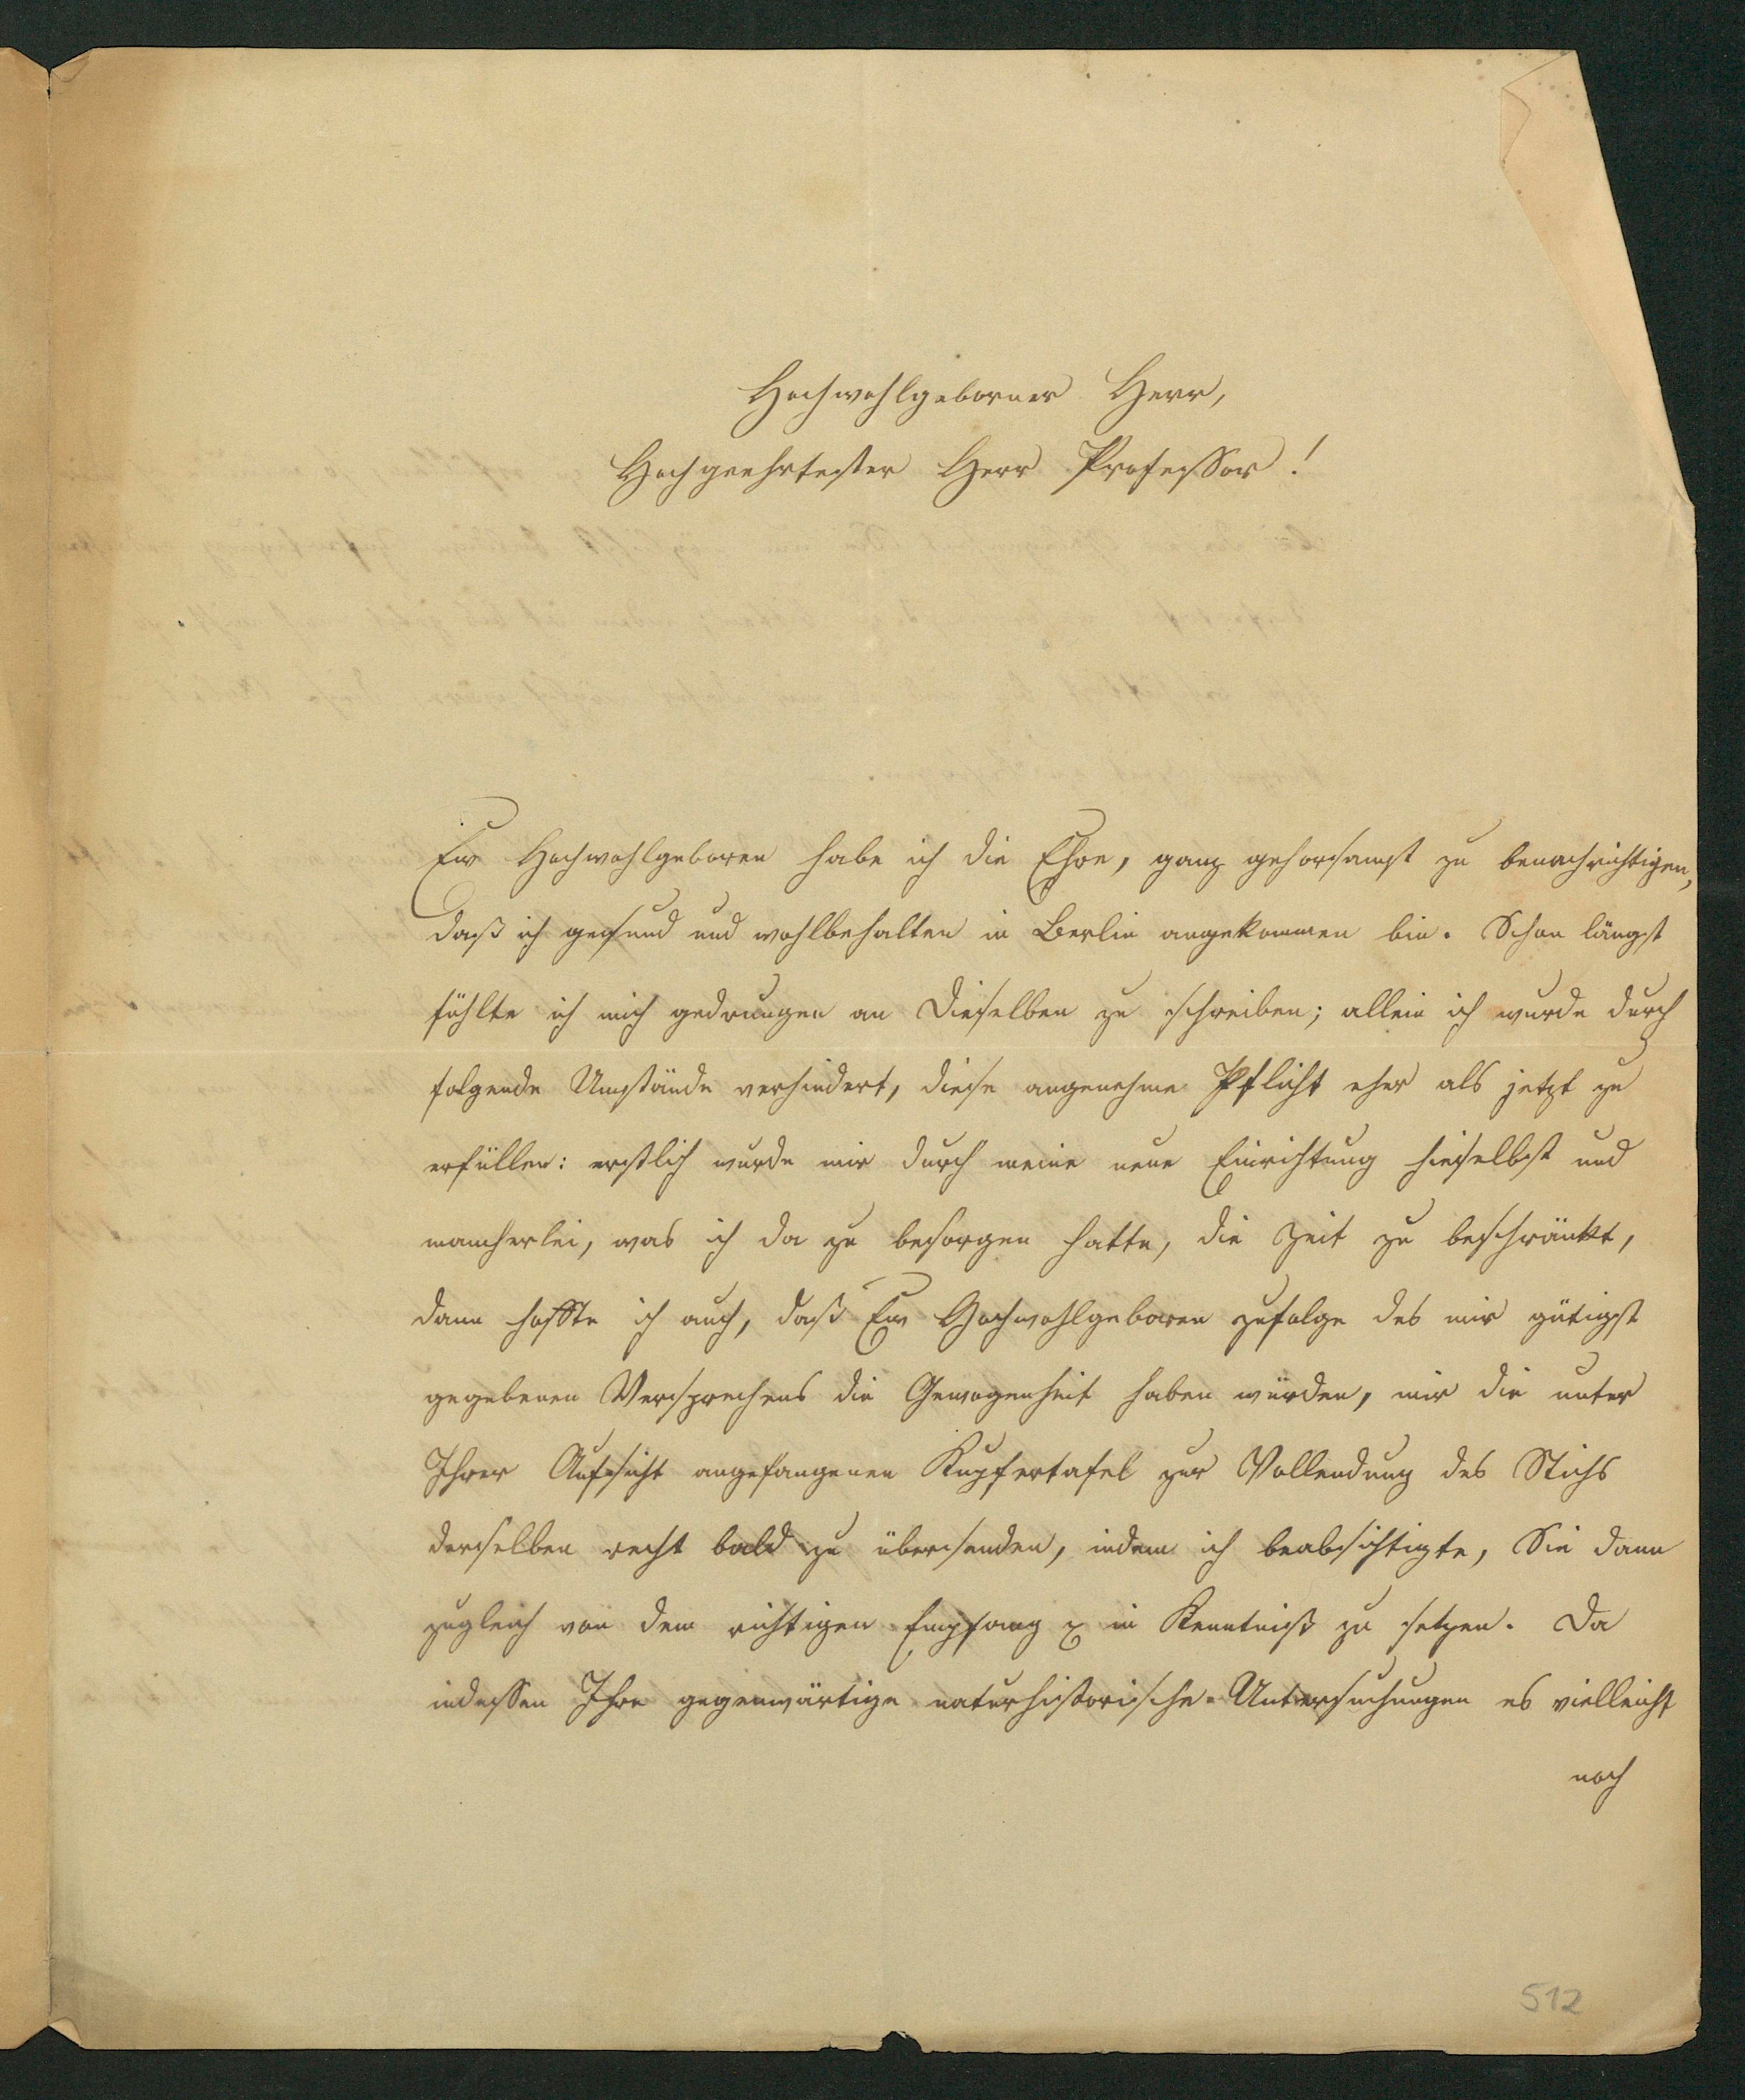 Hochwohlgeborner Herr,
Hochgeehrtester Herr Professor!
Ew Hochwohlgeboren habe ich die Ehre, ganz gehorsamst zu benachrichtigen,
daß ich gesund und wohlbehalten in Berlin angekommen bin. Schon längst
fühlte ich mich gedrungen an Dieselben zu schreiben; allein ich wurde durch
folgende Umstände verhindert, diese angenehme Pflicht eher als jetzt zu
erfüllen: erstlich wurde mir durch meine neue Einrichtung hieselbst und
mancherlei, was ich da zu besorgen hatte, die Zeit zu beschränkt,
dann hoffte ich auch, daß Ew Hochwohlgeboren zufolge des mir gütigst
gegebenen Versprechens die Gewogenheit haben würden, mir die unter
Ihrer Aufsicht angefangenen Kupfertafel zur Vollendung des Stichs
derselben recht bald zu übersenden, indem ich beabsichtigte, Sie dann
zugleich von dem richtigen Empfang in Kenntniß zu setzen. Da
indessen Ihre gegenwärtige naturhistorische Untersuchungen es vielleicht
noch
512